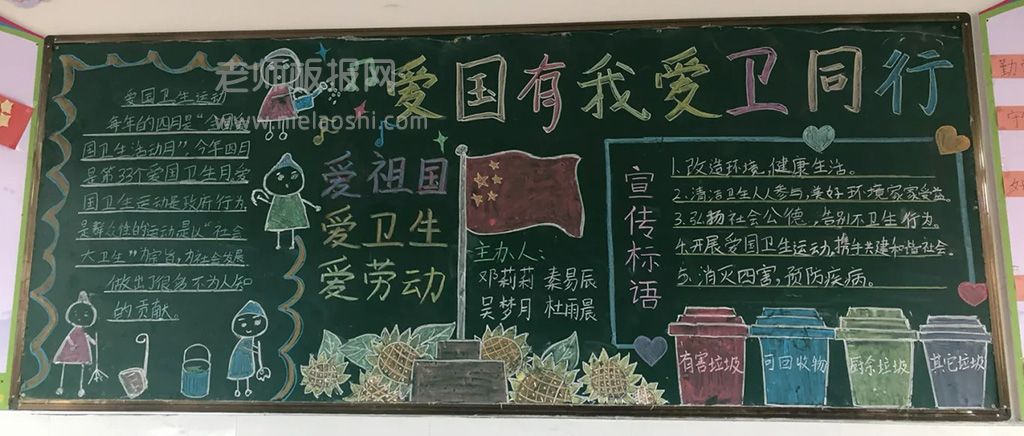 爱国有我 爱卫同行
老师板报网
www.melaoshi.com
爱国卫生运动
每年的四月是“全国爱
国卫生活动月”,今年四月
是第33个爱国卫生月,爱
国卫生运动是政府行为
是群众性的运动是以“社会
大卫生”为宗旨,为社会发展
做出了很多不为人知
的贡献。
爱祖国
爱卫生
爱劳动
主办人:
邓莉莉 秦易辰
吴梦月 杜雨晨
宣传标语
1.改造环境,健康生活。
2.清洁卫生人人参与,美好环境家家受益。
3.弘扬社会公德,告别不卫生行为。
4.开展爱国卫生运动,携手共建和谐社会。
5.消灭四害,预防疾病。
有害垃圾
可回收物
厨余垃圾
其它垃圾
勤